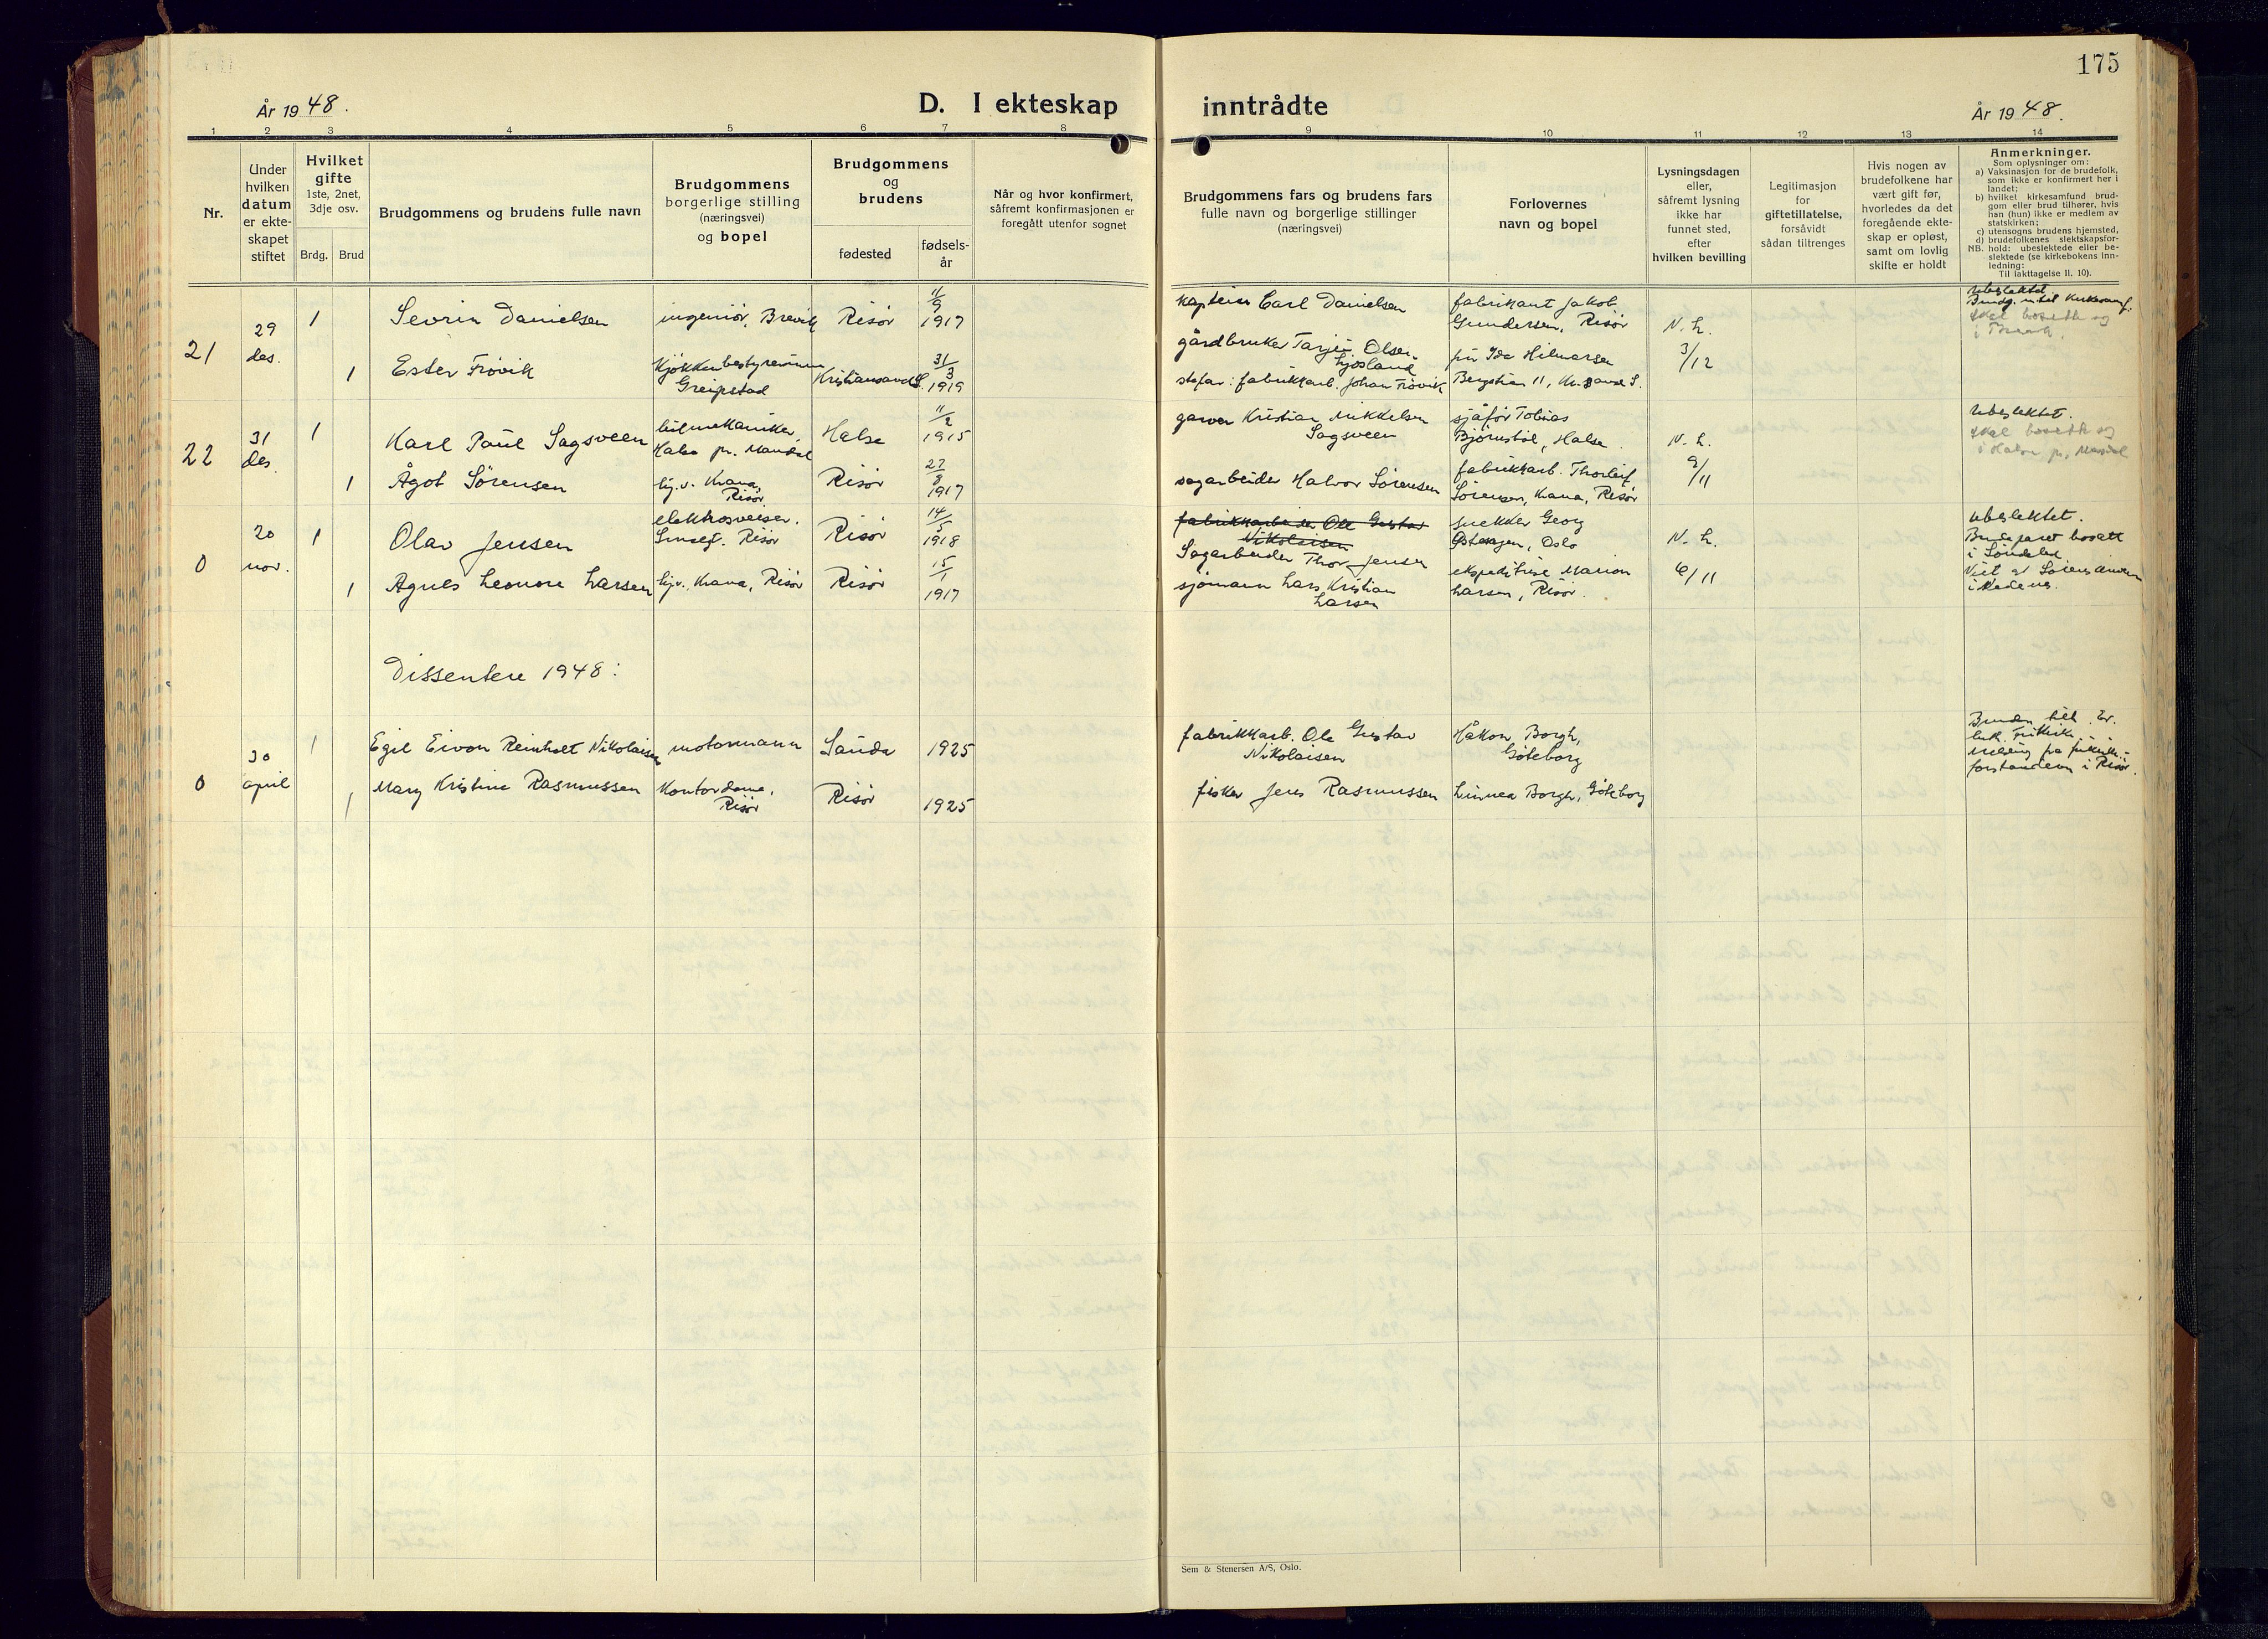 175
År 1948.
D. I ekteskap inntrådte
År 1948.
1 2 3 4 5 6 7 8 9 10 11 12 13 14
Nr.
Under
hvilken
datum
er ekte-
skapet
stiftet
Hvilket
gifte
1ste, 2net,
3dje osv.
Brdg. Brud
Brudgommens og brudens fulle navn
Brudgommens
borgerlige stilling
(næringsvei)
og bopel
Brudgommens
og
brudens
fødested
fødsels-
år
Når og hvor konfirmert,
såfremt konfirmasjonen er
foregått utenfor sognet
Brudgommens fars og brudens fars
fulle navn og borgerlige stillinger
(næringsvei)
Forlovernes
navn og bopel
Lysningsdagen
eller,
såfremt lysning
ikke har
funnet sted,
efter
hvilken bevilling
Legitimasjon
for
giftetillatelse,
forsåvidt
sådan tiltrenges
Hvis nogen av
brudefolkene har
vært gift før,
hvorledes da det
foregående ekte-
skap er opløst,
samt om lovlig
skifte er holdt
Anmerkninger.
Som oplysninger om:
a) Vaksinasjon for de brudefolk,
som ikke er konfirmert her i
landet;
b) hvilket kirkesamfund brud-
gom eller brud tilhører, hvis
han (hun) ikke er medlem av
statskirken;
c) utensogns brudens hjemsted,
d) brudefolkenes slektskapsfor-
NB. hold: ubeslektede eller be-
slektede (se kirkebokens inn-
ledning:
Til iakttagelse II. 10).
21
29
des.
1
Sevrin Danielsen
ingeniör, Brevik
Risör
11/9
1917
kaptein Carl Danielsen
fabrikant Jakob
Gundersen, Risör
N. L.
3/12
ubeslektet
skal bosette seg
i Brevik.
1
Ester Frövik
Kjökkenbestyrerinne
Greipstad
Kristiansand S.
31/3
1919
gårdbruker Tarjei Olsen
Ljosland
stefar: fabrikkarb. Johan Frövik
frk Ida Hilmarsen
Bergstien 11, Kr.sand S.
22
31
des.
1
Karl Paul Sagsveen
bilmekaniker,
Halse pr. Mandal
Halse
11/2
1915
garver Kristian Mikkelsen
Sagsveen
sjåför Tobias
Björnstöl, Halse
N. L.
9/11
ubeslektet.
skal bosette seg
i Halse pr. Mandal
1
Ågot Sörensen
hj.v. Krana,
Risör
Risör
27/8
1917
sagarbeider Halvor Sörensen
fabrikkarb. Thorleif
Sörensen, Krana, Risör
0
20
nov.
1
Olav Jensen
elektrosveiser.
Risör
Risör
14/5
1918
fabrikkarbeider Ole Gustav
Nikolaisen
Sagarbeider Thor Jensen
snekker Georg
Östensen, Oslo
N. L.
6/11
ubeslektet.
Brudeparet bosatt
i Söndeled.
1
Agnes Leonore Larsen
hj.v. Krana, Risör
Risör
15/1
1917
sjömann Lars Kristian
Larsen
ekspeditrise Marion
Larsen, Risör.
Dissentere 1948:
0
30
april
1
Egil Eivon Reinholt Nikolaisen
motormann
Sauda
1925
fabrikkarb. Ole Gustav
Nikolaisen
Håkon Borgh,
Göteborg
Bruden tilh. Ev.
luth. Frikirke.
Melding fra frikirke-
forstanderen i Risör.
1
Mary Kristine Rasmussen
Kontordame,
Risör
Risör
1925
fisker Jens Rasmussen
Linnea Borgh, Göteborg
Sem & Stenersen A/S, Oslo.